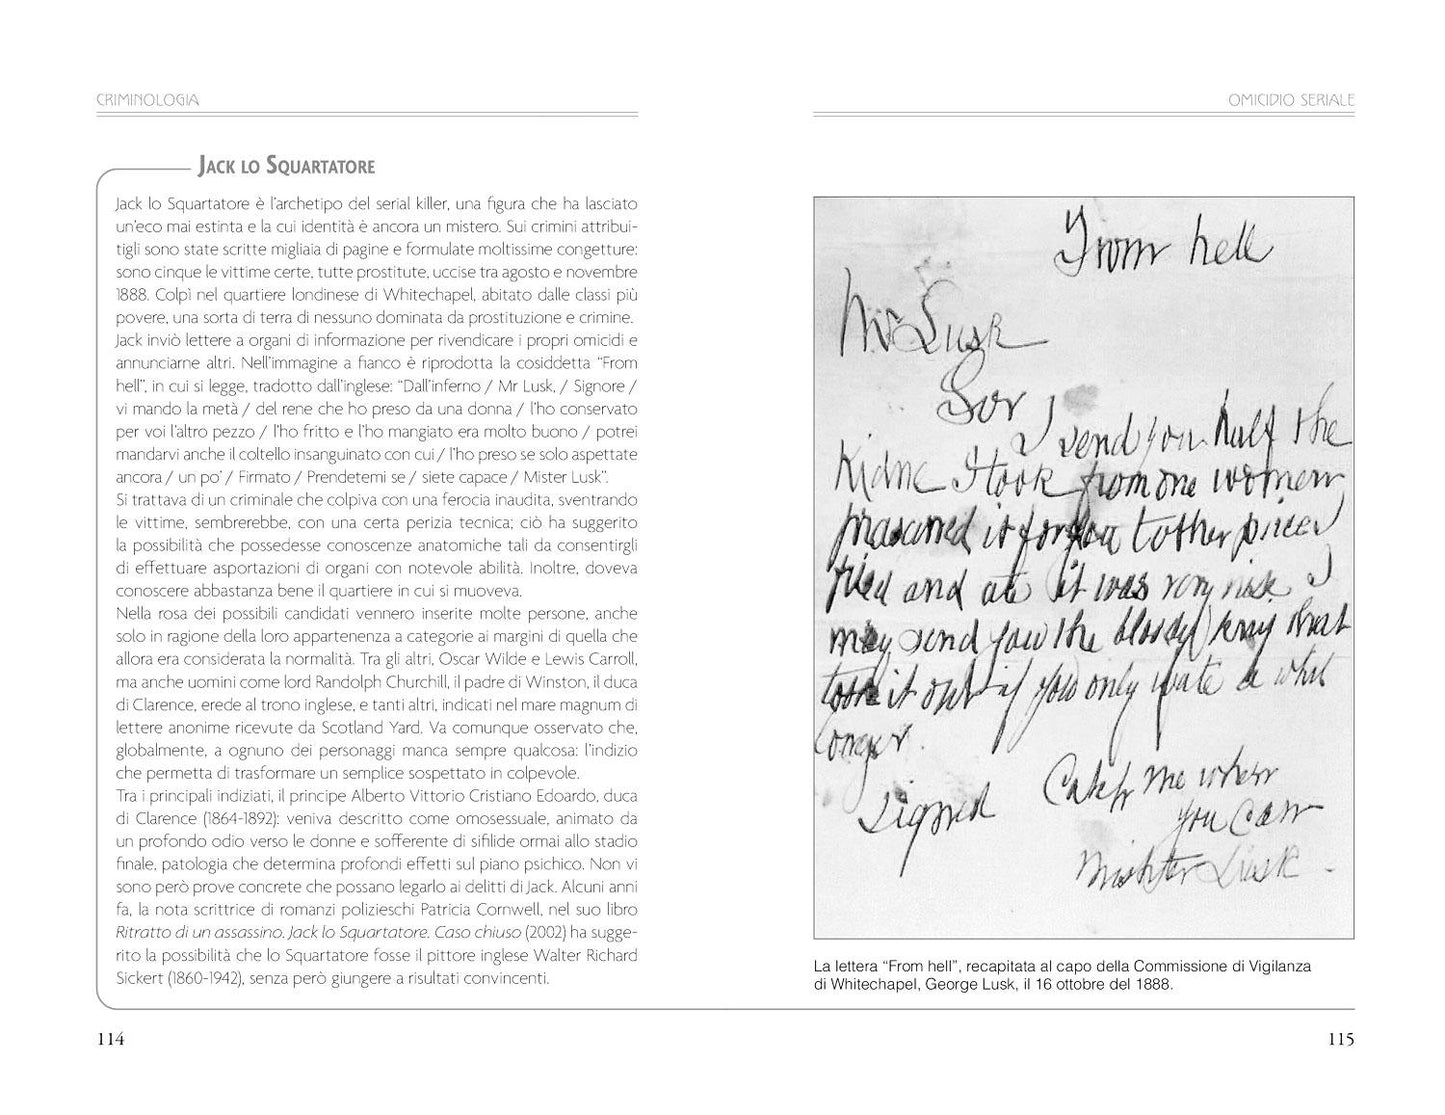 CRIMINOLOGIA
JACK LO SQUARTATORE
Jack lo Squartatore è l'archetipo del serial killer, una figura che ha lasciato
un'eco mai estinta e la cui identità è ancora un mistero. Sui crimini attribui-
tigli sono state scritte migliaia di pagine e formulate moltissime congetture:
sono cinque le vittime certe, tutte prostitute, uccise tra agosto e novembre
1888. Colpì nel quartiere londinese di Whitechapel, abitato dalle classi più
povere, una sorta di terra di nessuno dominata da prostituzione e crimine.
Jack inviò lettere a organi di informazione per rivendicare i propri omicidi e
annunciarne altri. Nell'immagine a fianco è riprodotta la cosiddetta “From
hell”, in cui si legge, tradotto dall'inglese: “Dall'inferno / Mr Lusk, / Signore /
vi mando la metà / del rene che ho preso da una donna / l'ho conservato
per voi l'altro pezzo / l'ho fritto e l'ho mangiato era molto buono / potrei
mandarvi anche il coltello insanguinato con cui / l'ho preso se solo aspettate
ancora / un po' / Firmato / Prendetemi se / siete capace / Mister Lusk”.
Si trattava di un criminale che colpiva con una ferocia inaudita, sventrando
le vittime, sembrerebbe, con una certa perizia tecnica; ciò ha suggerito
la possibilità che possedesse conoscenze anatomiche tali da consentirgli
di effettuare asportazioni di organi con notevole abilità. Inoltre, doveva
conoscere abbastanza bene il quartiere in cui si muoveva.
Nella rosa dei possibili candidati vennero inserite molte persone, anche
solo in ragione della loro appartenenza a categorie ai margini di quella che
allora era considerata la normalità. Tra gli altri, Oscar Wilde e Lewis Carroll,
ma anche uomini come lord Randolph Churchill, il padre di Winston, il duca
di Clarence, erede al trono inglese, e tanti altri, indicati nel mare magnum di
lettere anonime ricevute da Scotland Yard. Va comunque osservato che,
globalmente, a ognuno dei personaggi manca sempre qualcosa: l'indizio
che permetta di trasformare un semplice sospettato in colpevole.
Tra i principali indiziati, il principe Alberto Vittorio Cristiano Edoardo, duca
di Clarence (1864-1892): veniva descritto come omosessuale, animato da
un profondo odio verso le donne e sofferente di sifilide ormai allo stadio
finale, patologia che determina profondi effetti sul piano psichico. Non vi
sono però prove concrete che possano legarlo ai delitti di Jack. Alcuni anni
fa, la nota scrittrice di romanzi polizieschi Patricia Cornwell, nel suo libro
Ritratto di un assassino. Jack lo Squartatore. Caso chiuso (2002) ha sugge-
rito la possibilità che lo Squartatore fosse il pittore inglese Walter Richard
Sickert (1860-1942), senza però giungere a risultati convincenti.
114
OMICIDIO SERIALE
From hell
Mr Lusk
Sor
I send you half the
Kidne I took from one women
prasarved it for you tother piece I
fried and ate it was very nise I
may send you the bloody knif that
took it out if you only wate a whil
longer.
Signed
Catch me when
you can
Mishter Lusk.
La lettera “From hell”, recapitata al capo della Commissione di Vigilanza
di Whitechapel, George Lusk, il 16 ottobre del 1888.
115